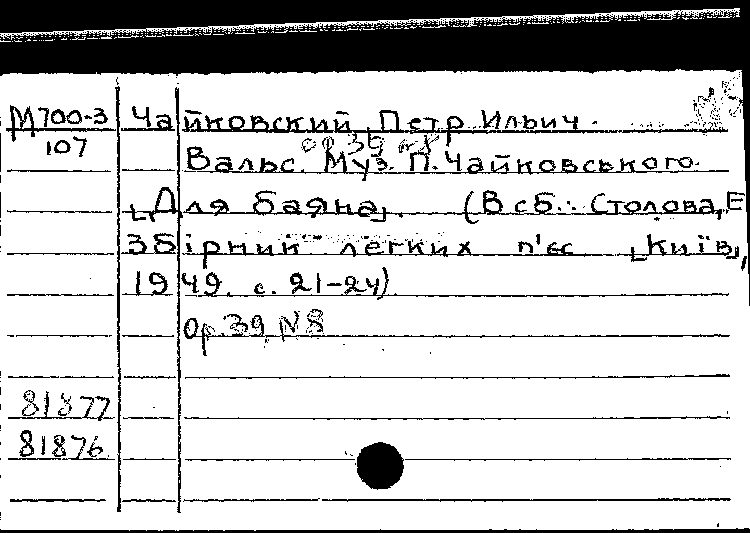 М700-3 Чайковский Петр Ильич.
107
ор. 39 №8
Вальс. Муз. П. Чайковського.
[Для баяна]. (В сб.: Столова, Е
Збірник легких п'єс [Київ],
1949. с. 21-24)
Ор. 39 N8
81877
81876